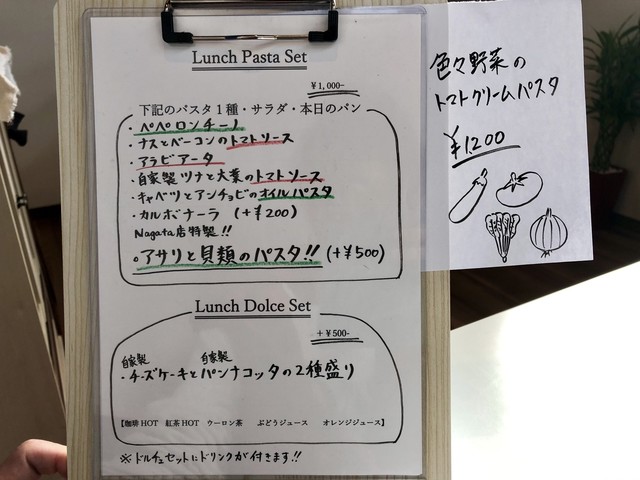 Lunch Pasta Set
¥1,000-
下記のパスタ1種・サラダ・本日のパン
・ペペロンチーノ
・ナスとベーコンのトマトソース
・アラビアータ
・自家製ツナと大葉のトマトソース
・キャベツとアンチョビのオイルパスタ
・カルボナーラ (+¥200)
Nagata店特製!!
・アサリと貝類のパスタ!! (+¥500)
Lunch Dolce Set
+¥500-
自家製 自家製
・チーズケーキとパンナコッタの2種盛り
【珈琲HOT 紅茶HOT ウーロン茶 ぶどうジュース オレンジジュース】
※ドルチェセットにドリンクが付きます!!
色々野菜の
トマトクリームパスタ
¥1,200